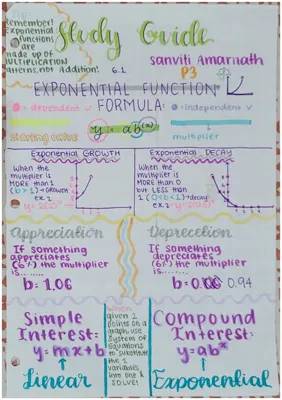 Remember!
Exponential
functions
are
made up of
MULTIPLICATION
patterns, not Addition!
Study Guide
6.1
sanviti Amarnath
P3
EXPONENTIAL FUNCTION
FORMULA:
= dependent
= independent
starting value
y = ab(x)
multiplier
Exponential GROWTH
When the
multiplier is
MORE than 1
(b>1) = growth
ex:
Exponential DECAY
When the
multiplier is
MORE than 0
but LESS than
1 (0<b<1) = decay
ex:
Appreciation
If something
appreciates
(6%) the multiplier
is.......
b= 1.06
Deprecetion
If something
depreciates
(6%) the multiplier
is.......
0.94
Simple
Interest:
y=mx+b
Linear
When
given 2
points on a
graph, use
System of
Equations
to substitute
the 2
variables
into one &
SOLVE!
Compound
Interest:
y=abx
Exponential